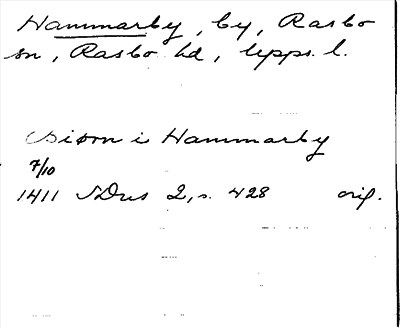 Hammarby, by, Rasbo
sn, Rasbo hd, Upps. l.
Sison i Hammarby
7/10
1411 SDns 2, s. 428 orig.